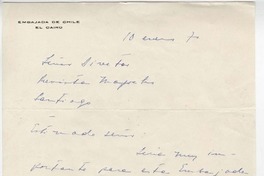 EMBAJADA DE CHILE
EL CAIRO
10 enero 70
Señor Director
Revista Mapocho
Santiago
Estimado señor:
Sería muy im-
portante para esta Embajada